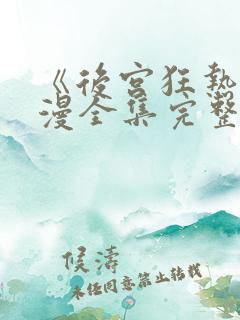 《後宮狂熱
漫全集完整
候濤
未任同意禁止转载